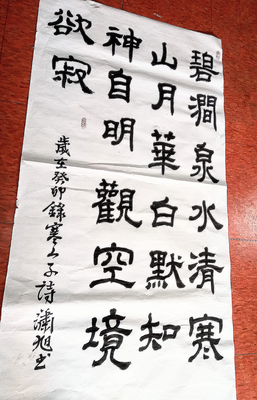 碧澗泉水清寒
山月華白默知
神自明觀空境
欲寂
歲在癸卯錄寒山子詩瀟旭書